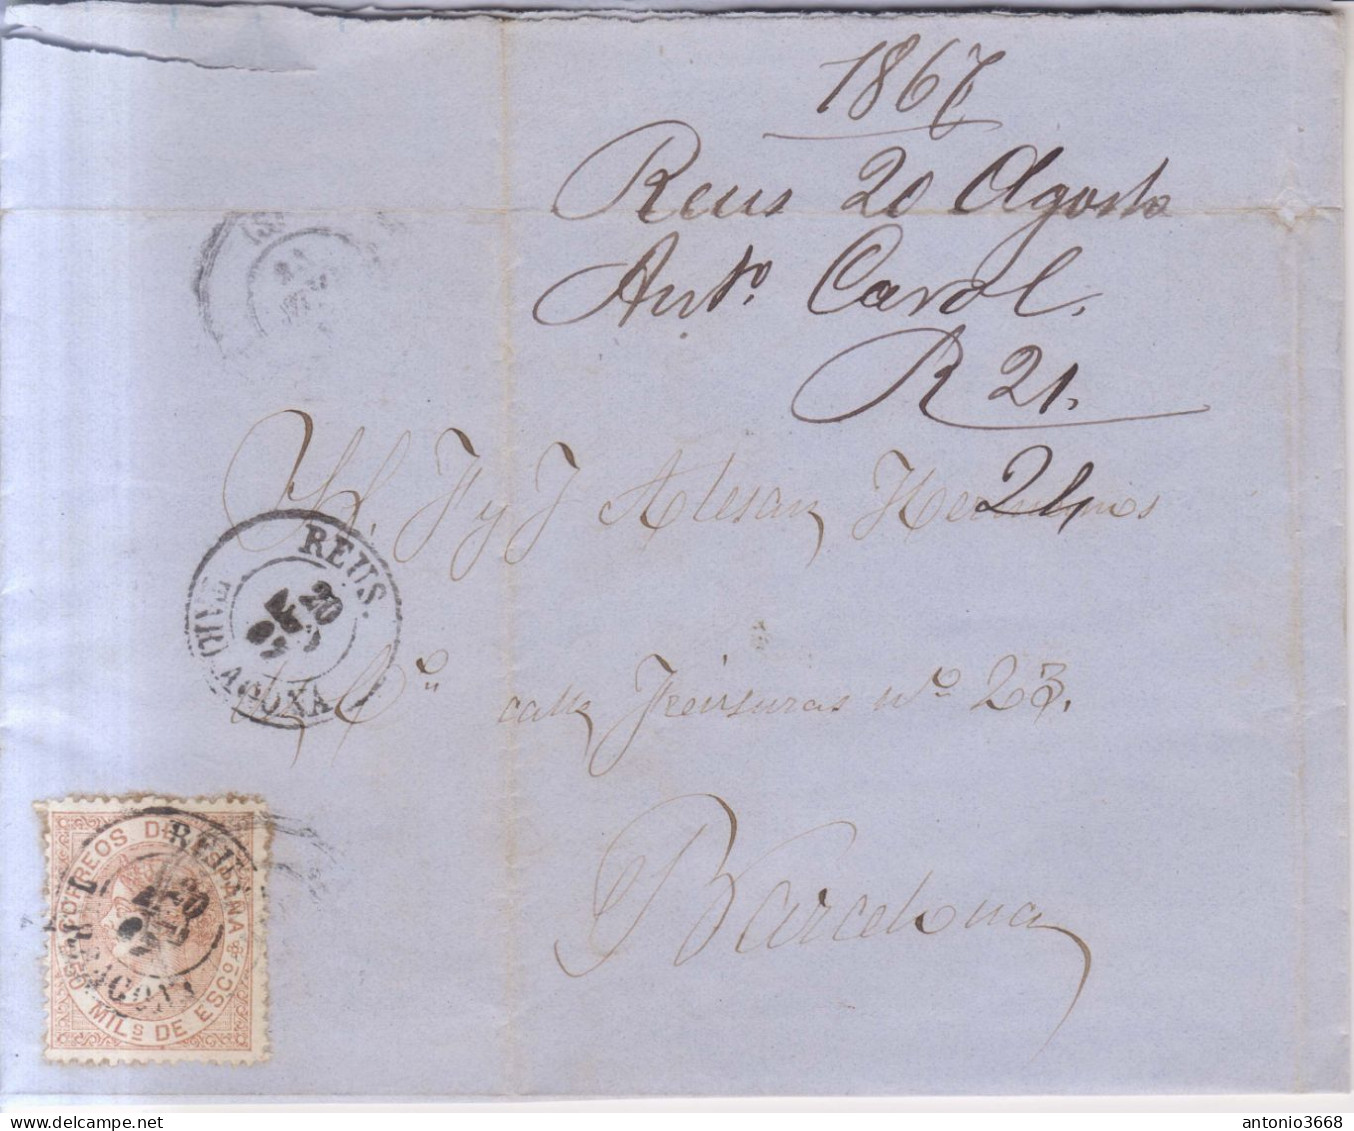 1867
Reus 20 Agosto
Antº. Carol.
R 21.
24
S.S. F y J Alesan Hermanos
REUS.
20
67
TARRAGONA
calle Freixuras nº 23.
Barcelona
CORREOS DE ESPAÑA
50 MILS DE ESCº
REUS
20
TARRAGONA
antonio3668